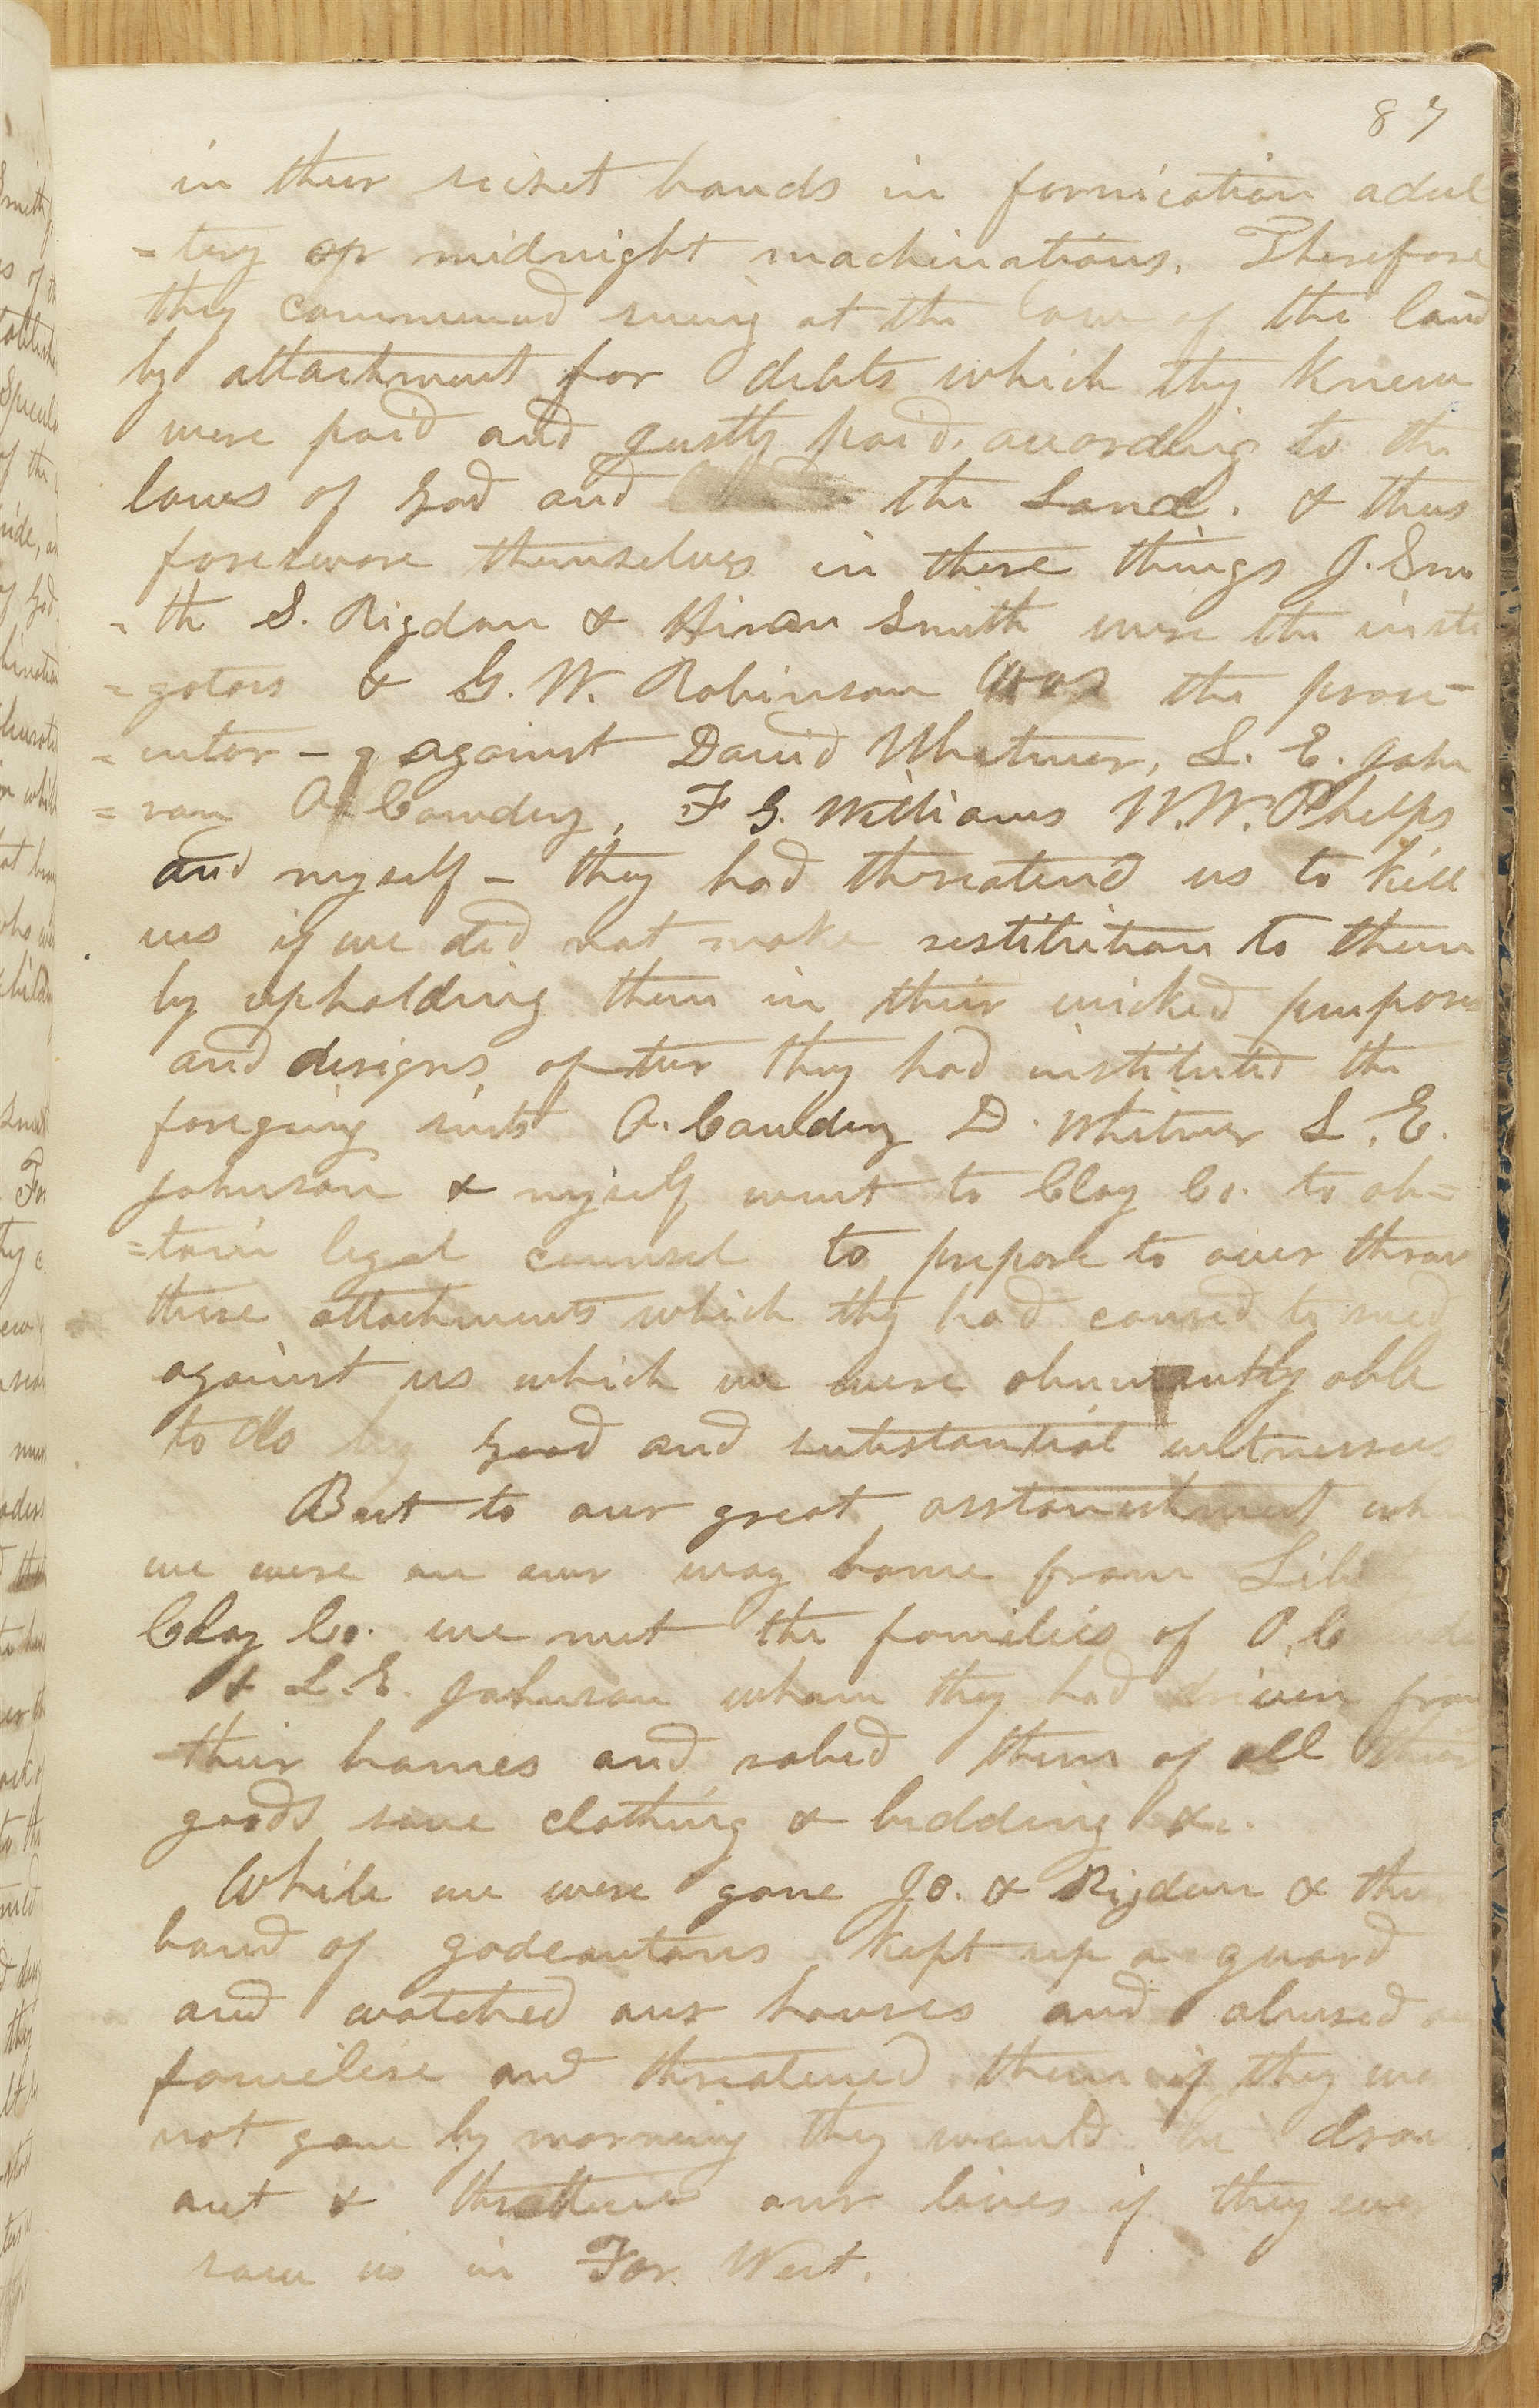 87
in their secret bands in fornication adul
=tery or midnight machinations. Therefore
they commenced suing at the law of the land
by attachment for debts which they knew
were paid and justly paid, according to the
laws of God and the Land. & thus
foreswore themselves in these things J. Smi
=th S. Rigdon & Hiram Smith were the insti
=gators & G. W. Robinson was the prose-
=cutor - against David Whitmer, L. E. John
=son O. Cowdery, F G. Williams W. W. Phelps
and myself - they had threatend us to kill
us if we did not make restitution to them
by upholding them in their wicked purposes
and designs, after they had instituted the
foregoing suits O. Cowdery D. Whitmer L. E.
Johnson & myself went to Clay Co. to ob=
=tain legal counsel to prepare to over throw
these attachments which they had caused to sued
against us which we were abundantly able
to do by good and substantial witnesses
But to our great asstonishment when
we were on our way home from Liberty
Clay Co. we met the families of O. Cowdery
& L. E. Johnson whom they had driven from
their homes and robed them of all their
goods save clothing & bedding &c.
While we were gone Jo. & Rigdon & their
band of gadeantons kept up a guard
and watched our houses and abused our
familise and threatened them if they were
not gone by morning they would be drove
out & threatened our lives if they ever
saw us in Far West.